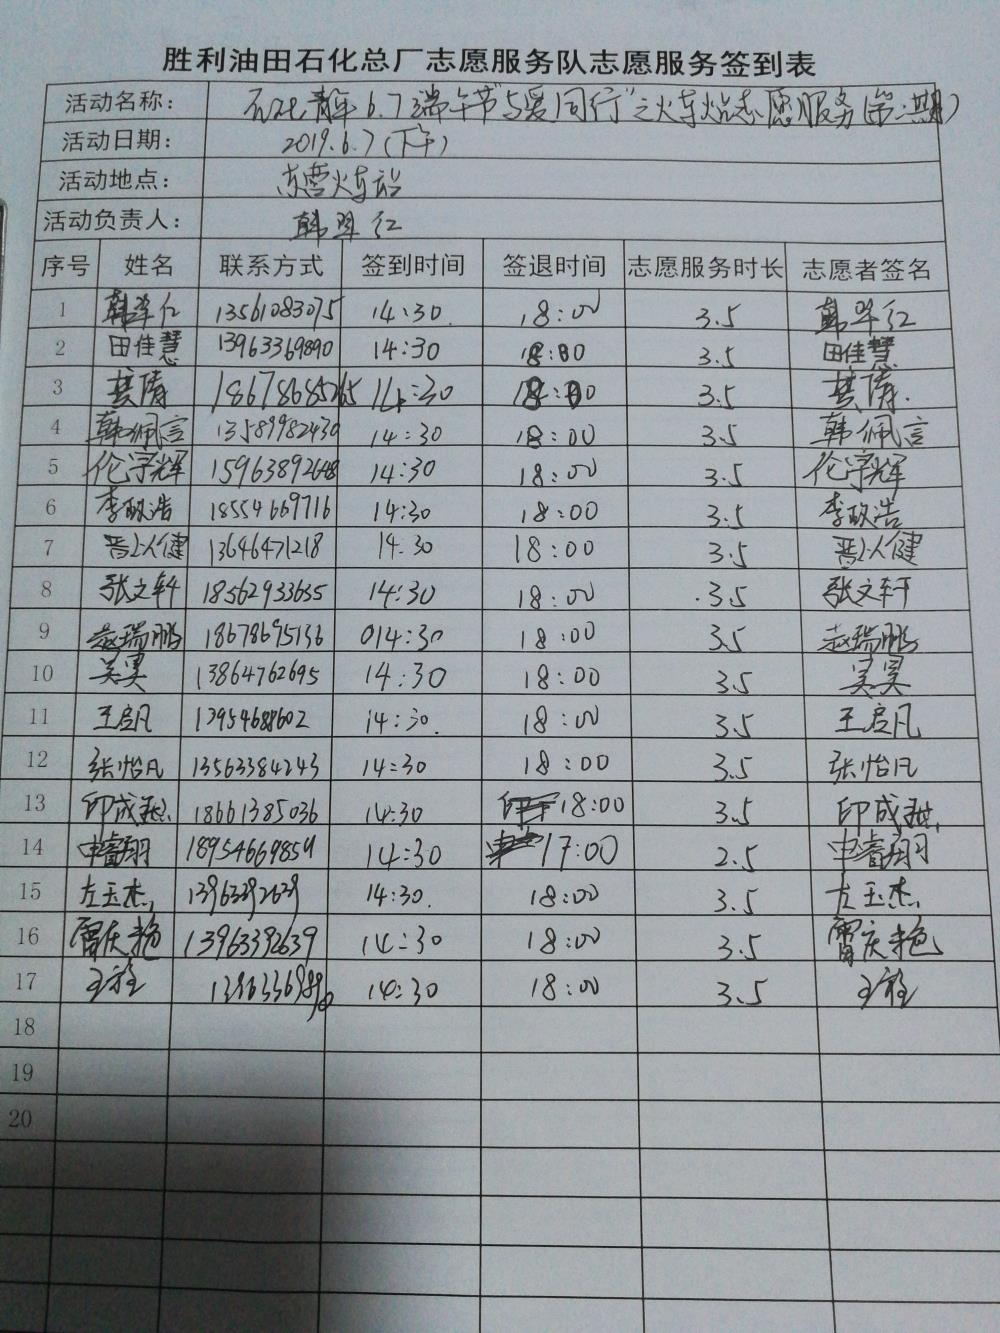 胜利油田石化总厂志愿服务队志愿服务签到表
活动名称： 石化青年6.7端午节"与爱同行"之火车站志愿服务(第二期)
活动日期： 2019.6.7(下午)
活动地点： 东营火车站
活动负责人： 韩翠红
序号 姓名 联系方式 签到时间 签退时间 志愿服务时长 志愿者签名
1 13561083075 14:30 18:00 3.5 韩翠红
2 田佳慧 13963369890 14:30 18:00 3.5 田佳慧
3 18678685265 14:30 18:00 3.5
4 韩佩言 13589982430 14:30 18:00 3.5 韩佩言
5 伦宇辉 15963892648 14:30 18:00 3.5 伦宇辉
6 李政浩 18554669716 14:30 18:00 3.5 李政浩
7 13646471218 14:30 18:00 3.5
8 张文轩 18562933635 14:30 18:00 3.5 张文轩
9 赵瑞鹏 18678695136 014:30 18:00 3.5 赵瑞鹏
10 吴昊 13864762695 14:30 18:00 3.5 吴昊
11 王启凡 13954688602 14:30 18:00 3.5 王启凡
12 张怡凡 13563384243 14:30 18:00 3.5 张怡凡
13 18661385036 14:30 18:00 3.5
14 申睿翔 18954669859 14:30 17:00 2.5 申睿翔
15 左玉杰 13963392639 14:30 18:00 3.5 左玉杰
16 13963392639 14:30 18:00 3.5
17 14:30 18:00 3.5
18
19
20